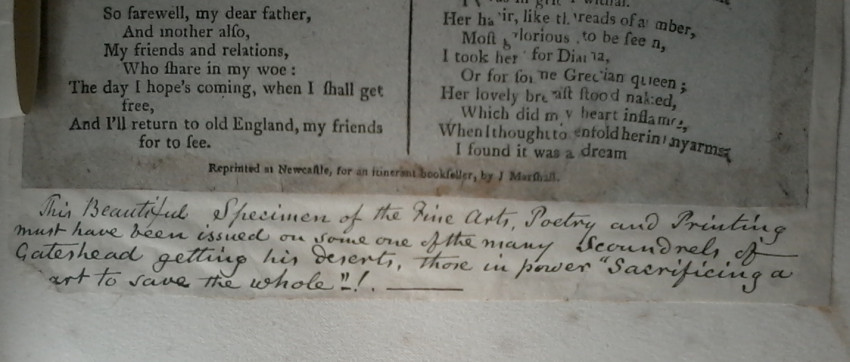 So farewell, my dear father,
And mother alſo,
My friends and relations,
Who ſhare in my woe :
The day I hope's coming, when I ſhall get
free,
And I'll return to old England, my friends
for to ſee.
Her hair, like threads of amber,
Moſt glorious to be ſeen,
I took her for Diana,
Or for ſome Grecian queen ;
Her lovely breaſt ſtood naked,
Which did my heart inflame,
When I thought to enfold her in my arms,
I found it was a dream
Reprinted at Newcaſtle, for an itinerant bookſeller, by J Marſhall.
This Beautiful Specimen of the Fine Arts, Poetry and Printing
must have been issued on some one of the many Scoundrels of
Gateshead getting his deserts, those in power "Sacrificing a
art to save the whole"!.